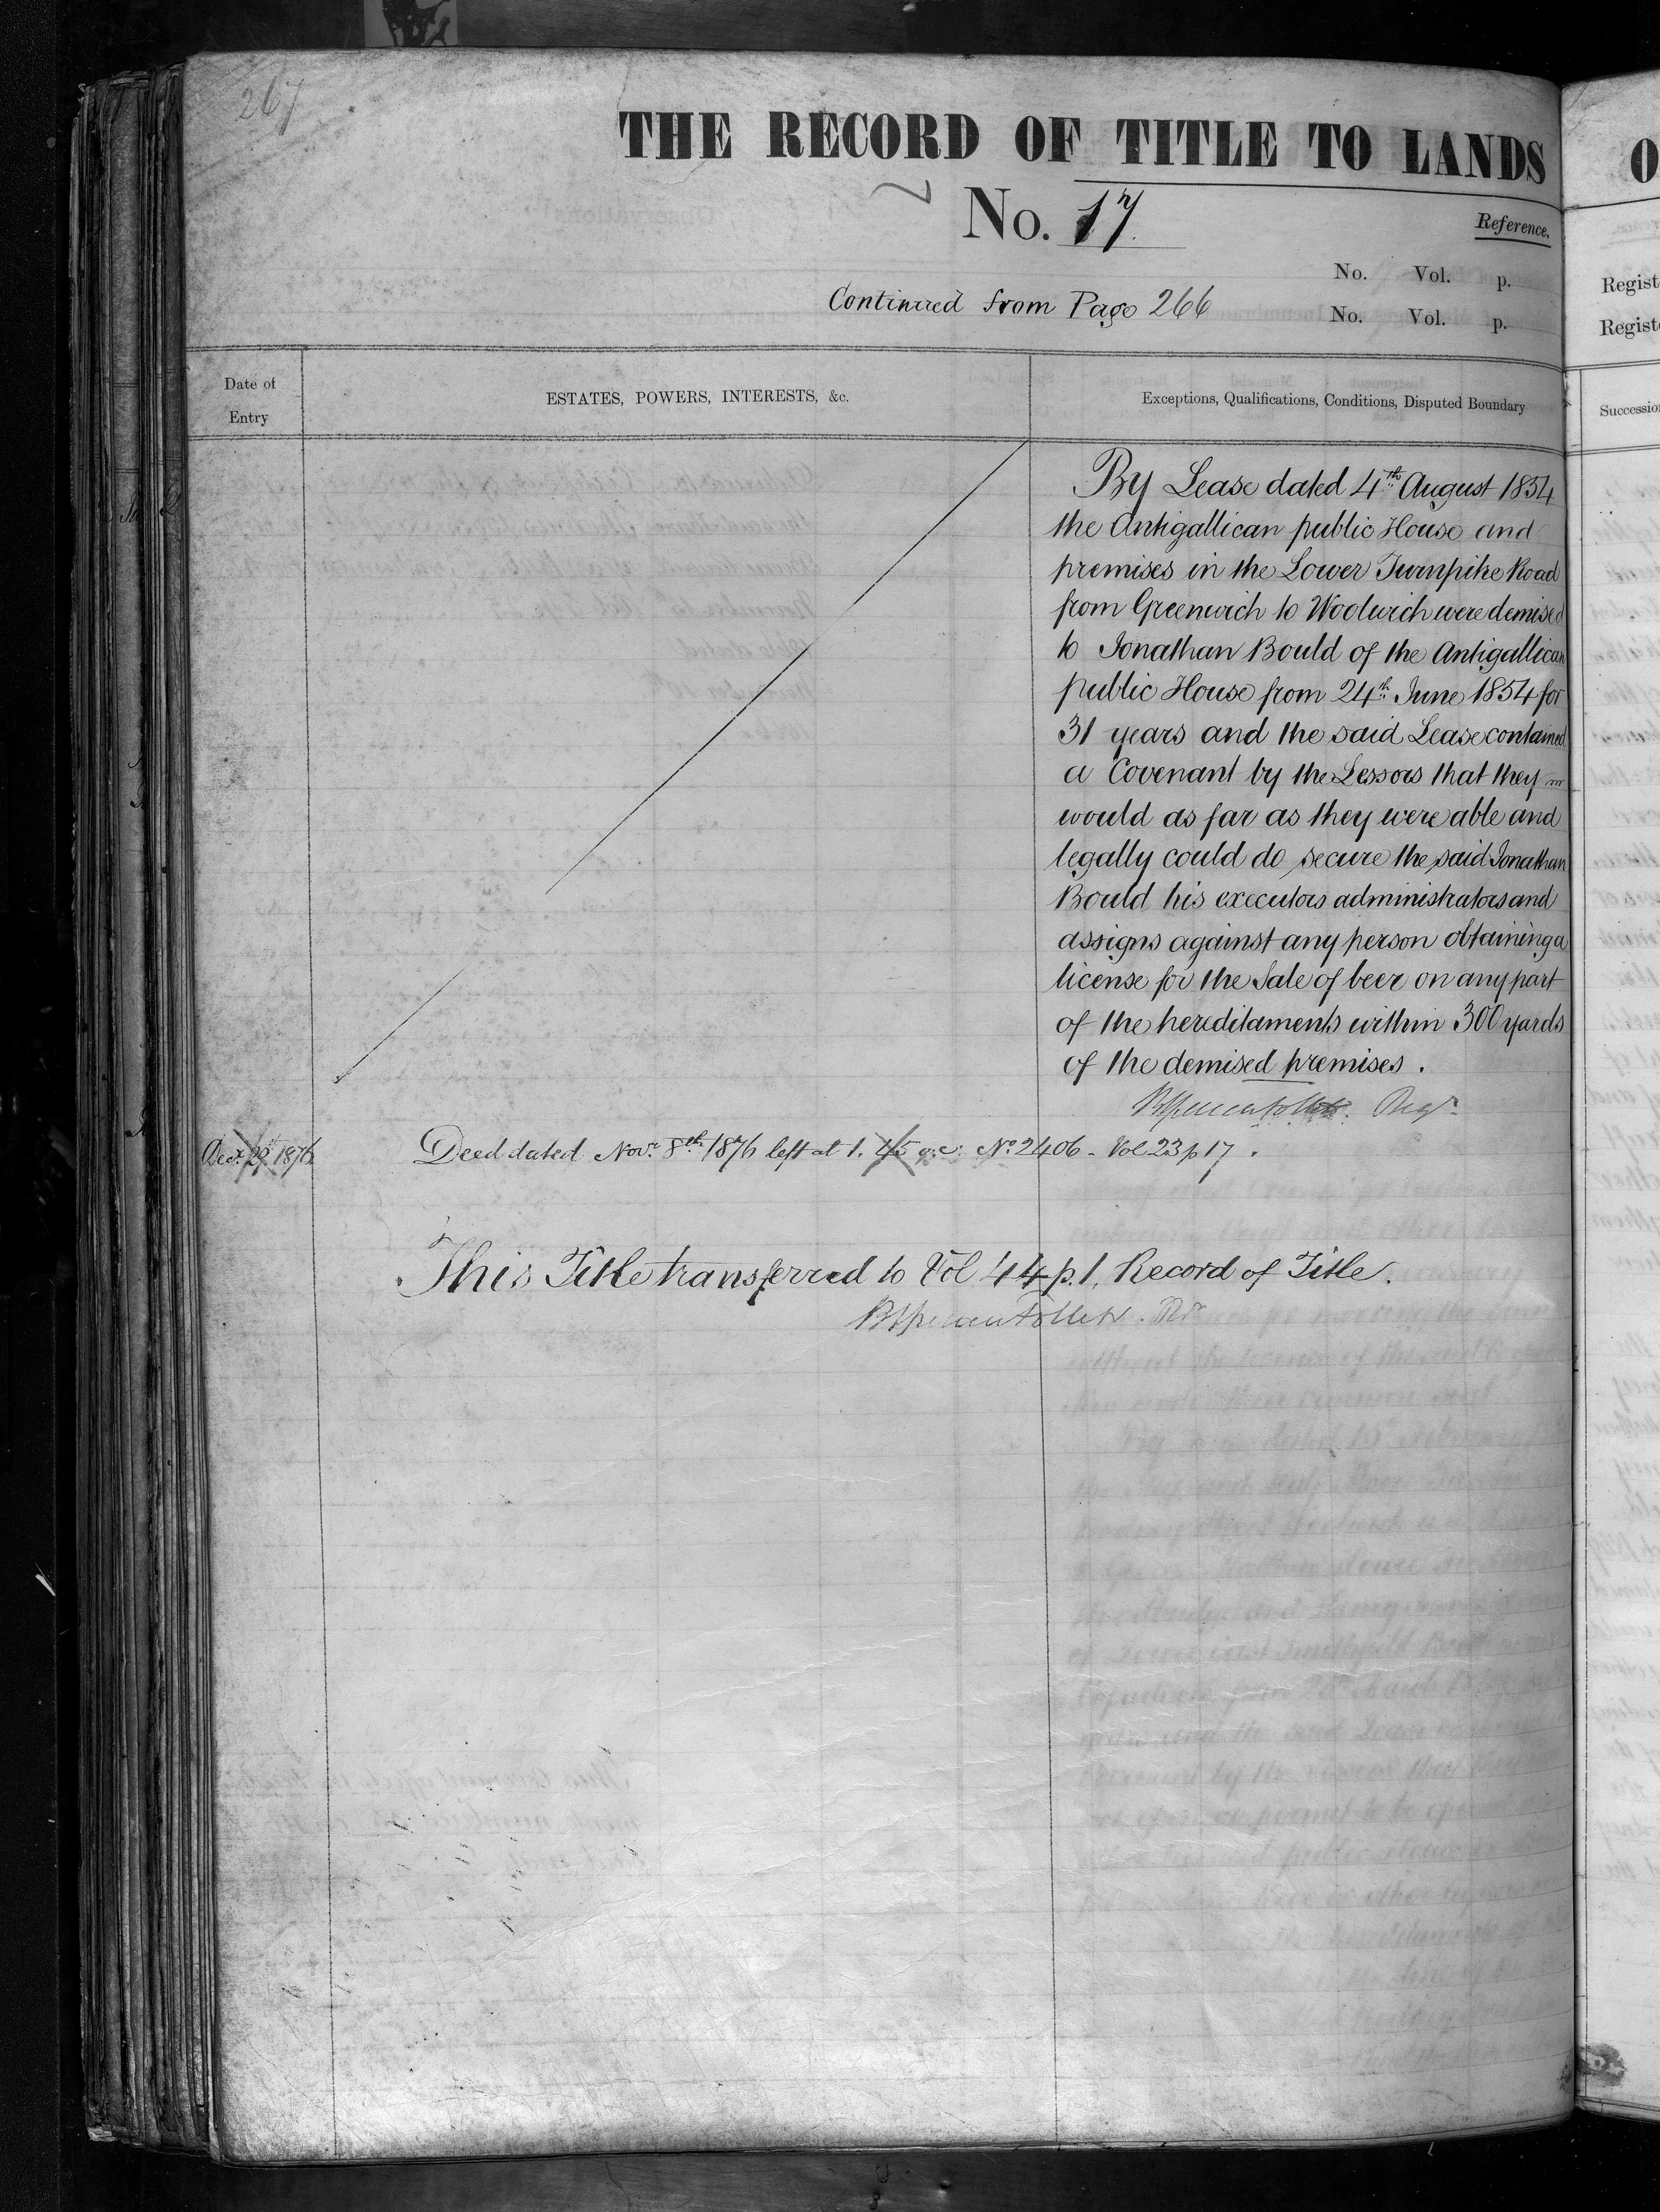 267
THE RECORD OF TITLE TO LANDS
No. 17.
Reference.
No. Vol. p.
Continued from Page 266
No. Vol. p.
Date of
Entry
ESTATES, POWERS, INTERESTS, &c.
Exceptions, Qualifications, Conditions, Disputed Boundary
By Lease dated 4th August 1854
the Antigallican public House and
premises in the Lower Turnpike Road
from Greenwich to Woolwich were demised
to Jonathan Bould of the Antigallican
public House from 24th June 1854 for
31 years and the said Lease contained
a Covenant by the Lessors that they
would as far as they were able and
legally could do secure the said Jonathan
Bould his executors administrators and
assigns against any person obtaining a
license for the Sale of beer on any part
of the hereditaments within 300 yards
of the demised premises.
Regr
Decr 1876
Deed dated Novr 8th 1876 left at 1.45 No 2406 - Vol 23 p 17.
This Title transferred to Vol 44 p. 1, Record of Title.
O
Regist
Regist
Successio